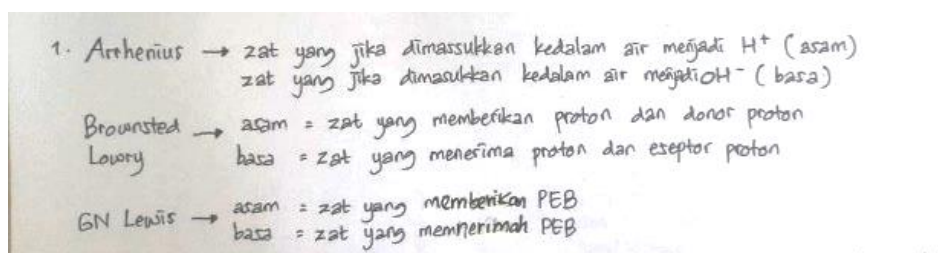 1. Arrhenius → zat yang jika dimassukkan kedalam air menjadi H⁺ (asam)
zat yang jika dimasukkan kedalam air menjadi OH⁻ (basa)
Brownsted → asam = zat yang memberikan proton dan donor proton
Lowry basa = zat yang menerima proton dan eseptor proton
GN Lewis → asam = zat yang memberikan PEB
basa = zat yang memnerimah PEB